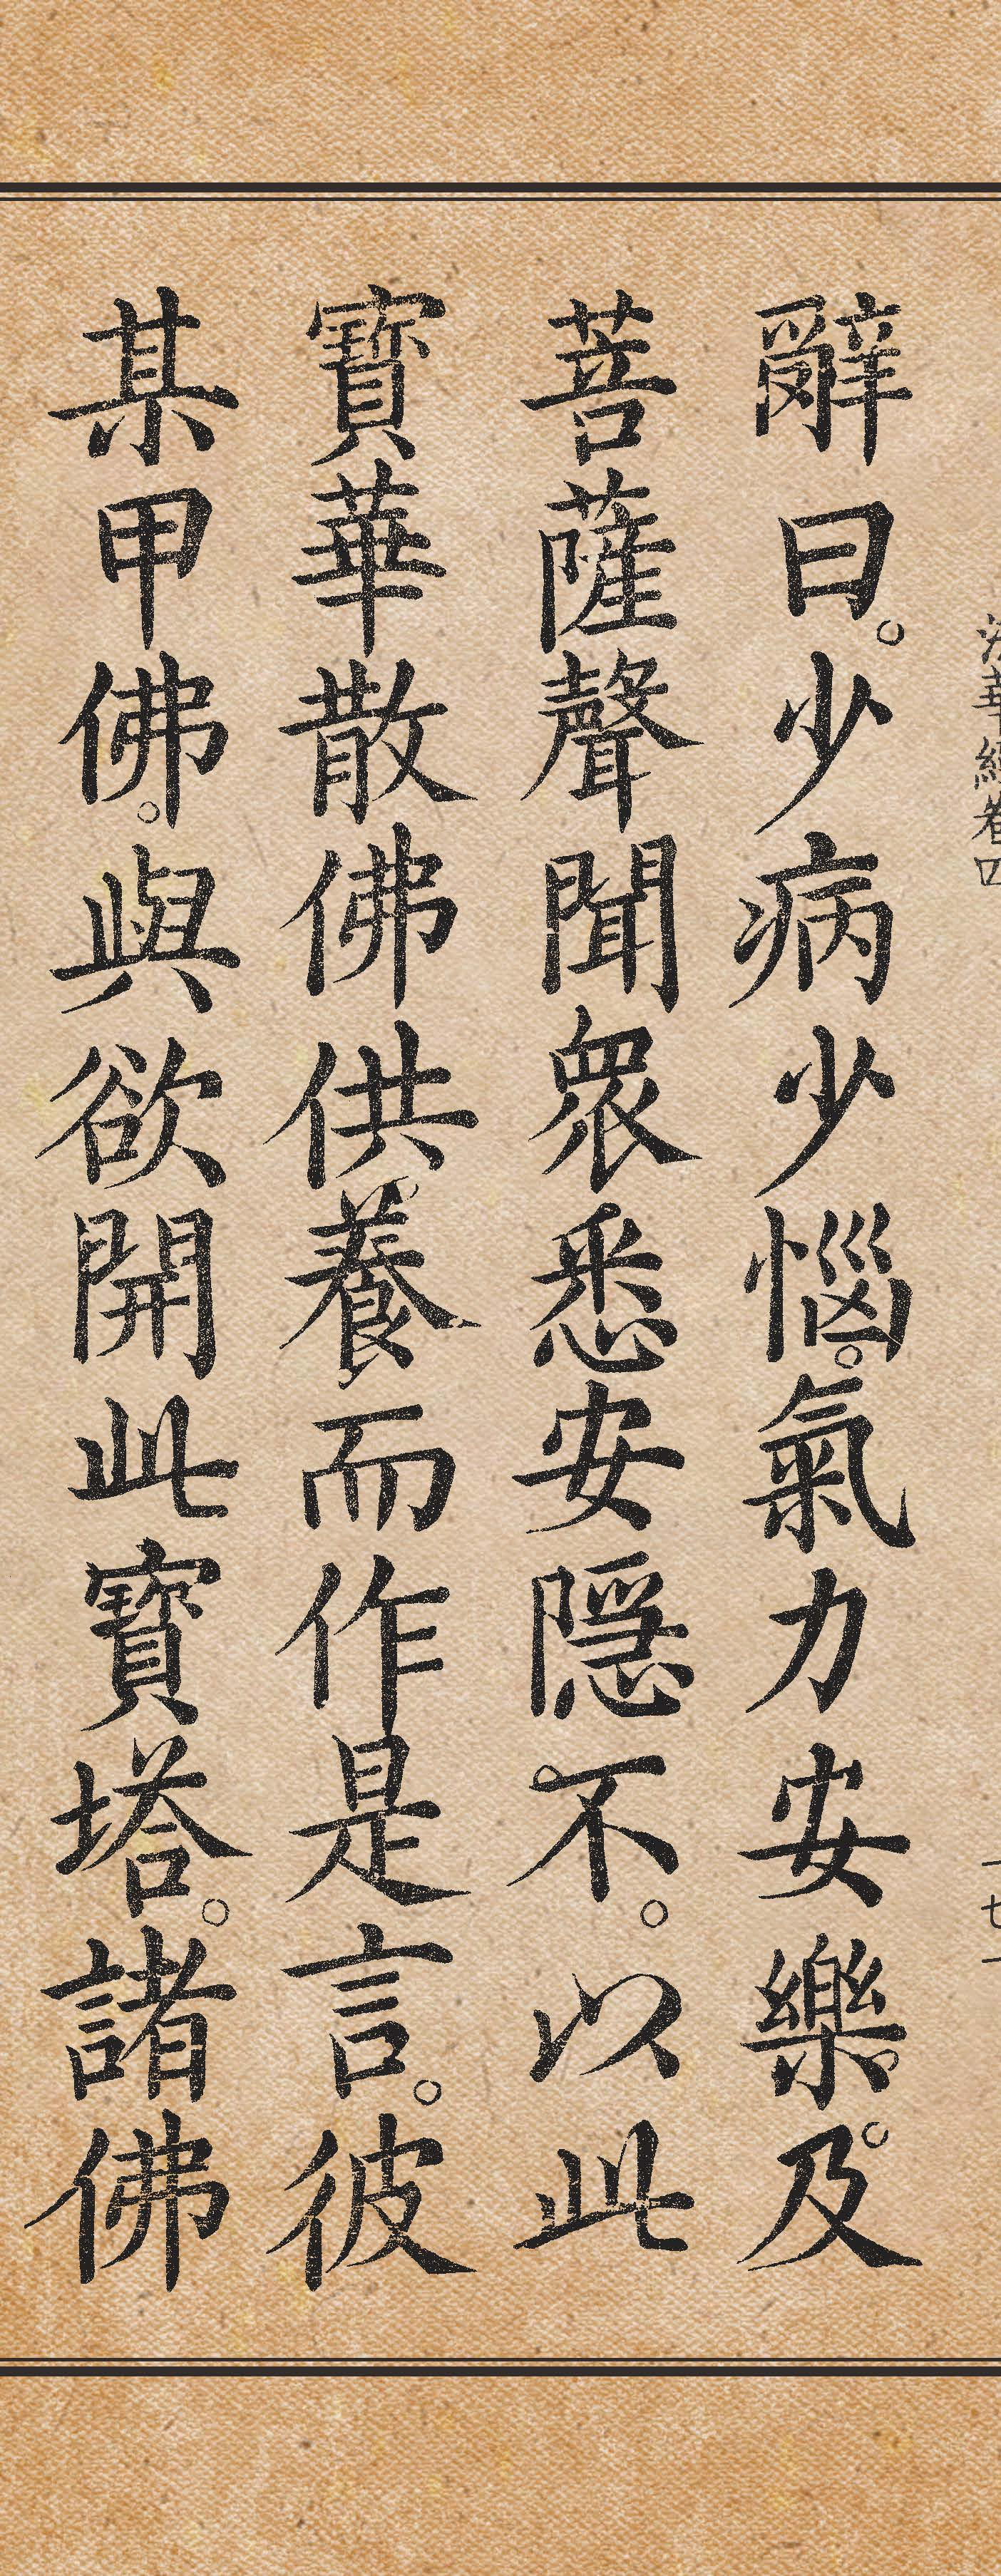 法華經卷四
一七一
辭曰。少病少惱。氣力安樂。及
菩薩聲聞眾悉安隱不。以此
寶華散佛供養而作是言。彼
某甲佛。與欲開此寶塔。諸佛